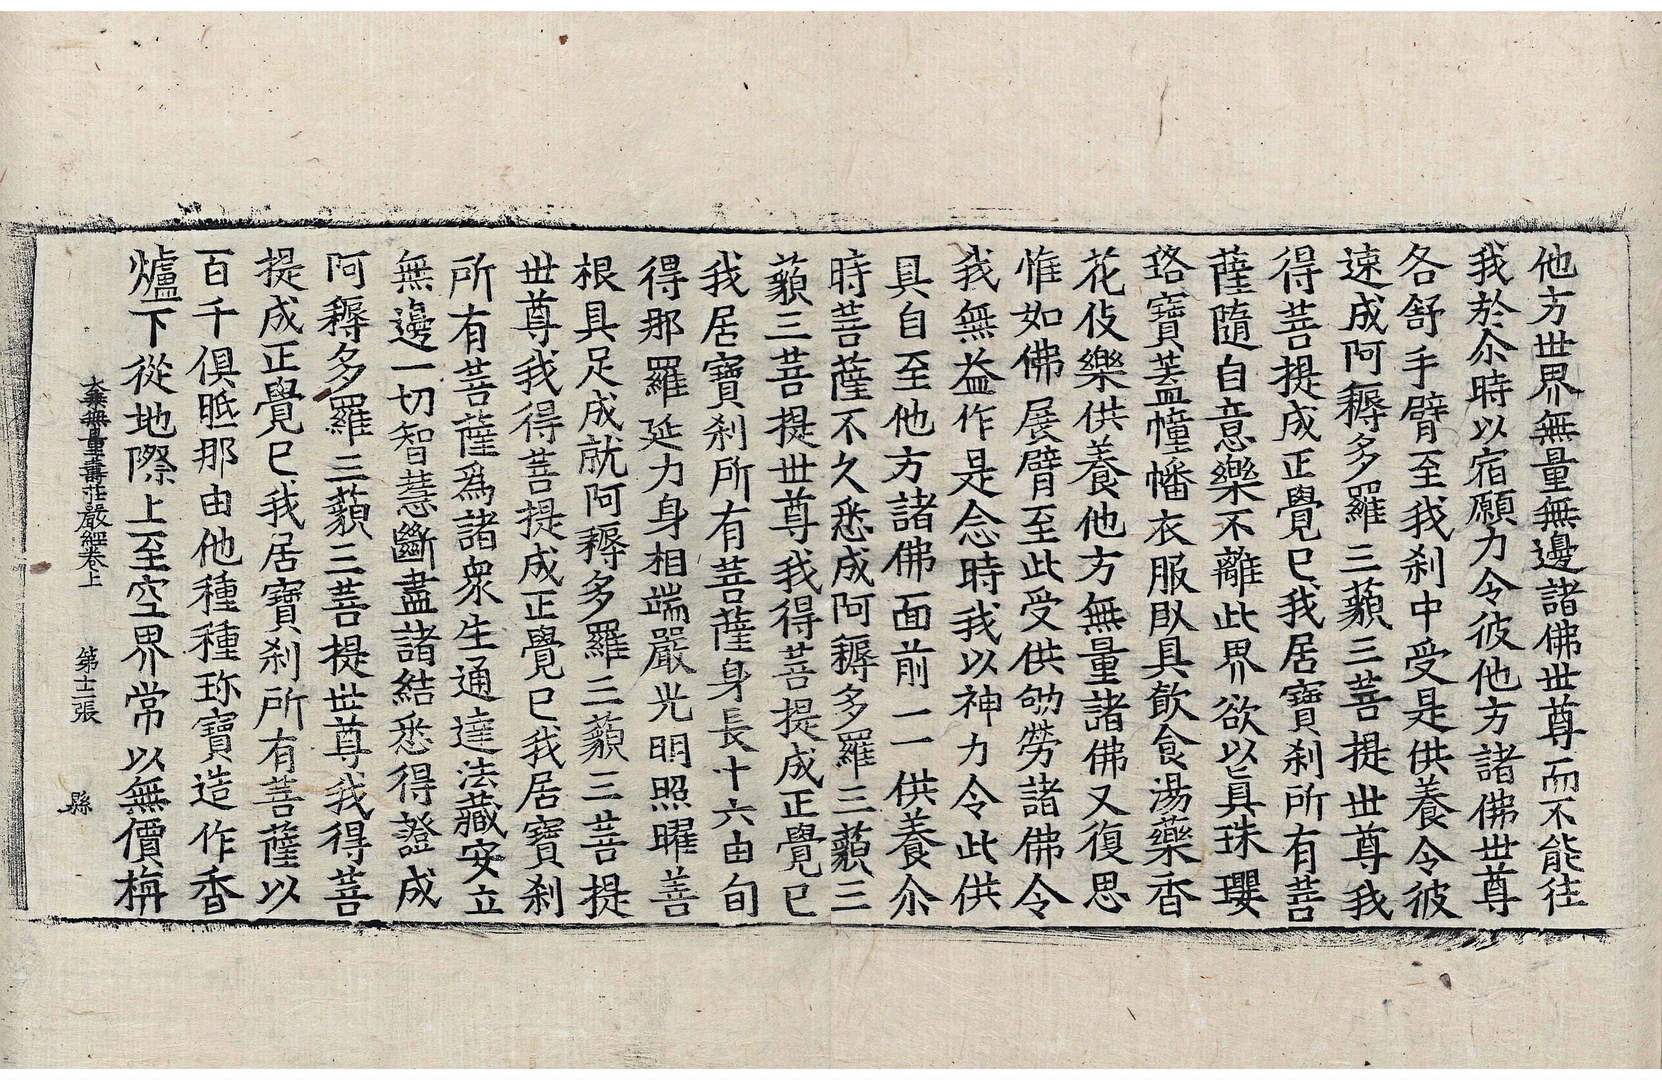 他方世界無量無邊諸佛世尊而不能往
我於尒時以宿願力令彼他方諸佛世尊
各舒手臂至我刹中受是供養令彼
速成阿耨多羅三藐三菩提世尊我
得菩提成正覺已我居寶刹所有菩
薩隨自意樂不離此界欲以真珠瓔
珞寶蓋幢幡衣服卧具飲食湯藥香
花伎樂供養他方無量諸佛又復思
惟如佛展臂至此受供劬勞諸佛令
我無益作是念時我以神力令此供
具自至他方諸佛面前一一供養尒
時菩薩不久悉成阿耨多羅三藐三
藐三菩提世尊我得菩提成正覺已
我居寶刹所有菩薩身長十六由旬
得那羅延力身相端嚴光明照曜善
根具足成就阿耨多羅三藐三菩提
世尊我得菩提成正覺已我居寶刹
所有菩薩爲諸衆生通達法藏安立
無邊一切智慧斷盡諸結悉得證成
阿耨多羅三藐三菩提世尊我得菩
提成正覺已我居寶刹所有菩薩以
百千俱胝那由他種種珎寶造作香
爐下從地際上至空界常以無價栴
大乗無量壽莊嚴經卷上 第十二張 縣